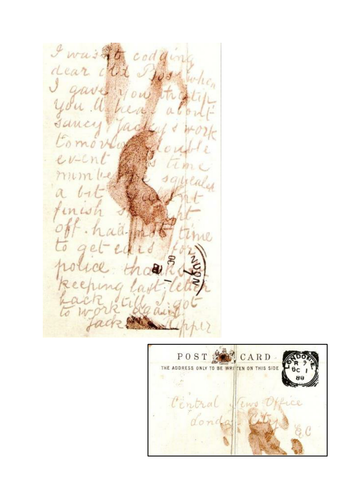 I wasnt codding
dear old Boss when
I gave you the tip.
you'll hear about
saucy Jackys work
tomorrow double
event this time
number one squealed
a bit couldnt
finish straight
off. had not time
to get ears for
police thanks for
keeping last letter
back till I got
to work again.
Jack the Ripper
LONDON
OC 1
POST CARD
THE ADDRESS ONLY TO BE WRITTEN ON THIS SIDE
LONDON.E
OC 1
88
Central News Office
London City
E.C